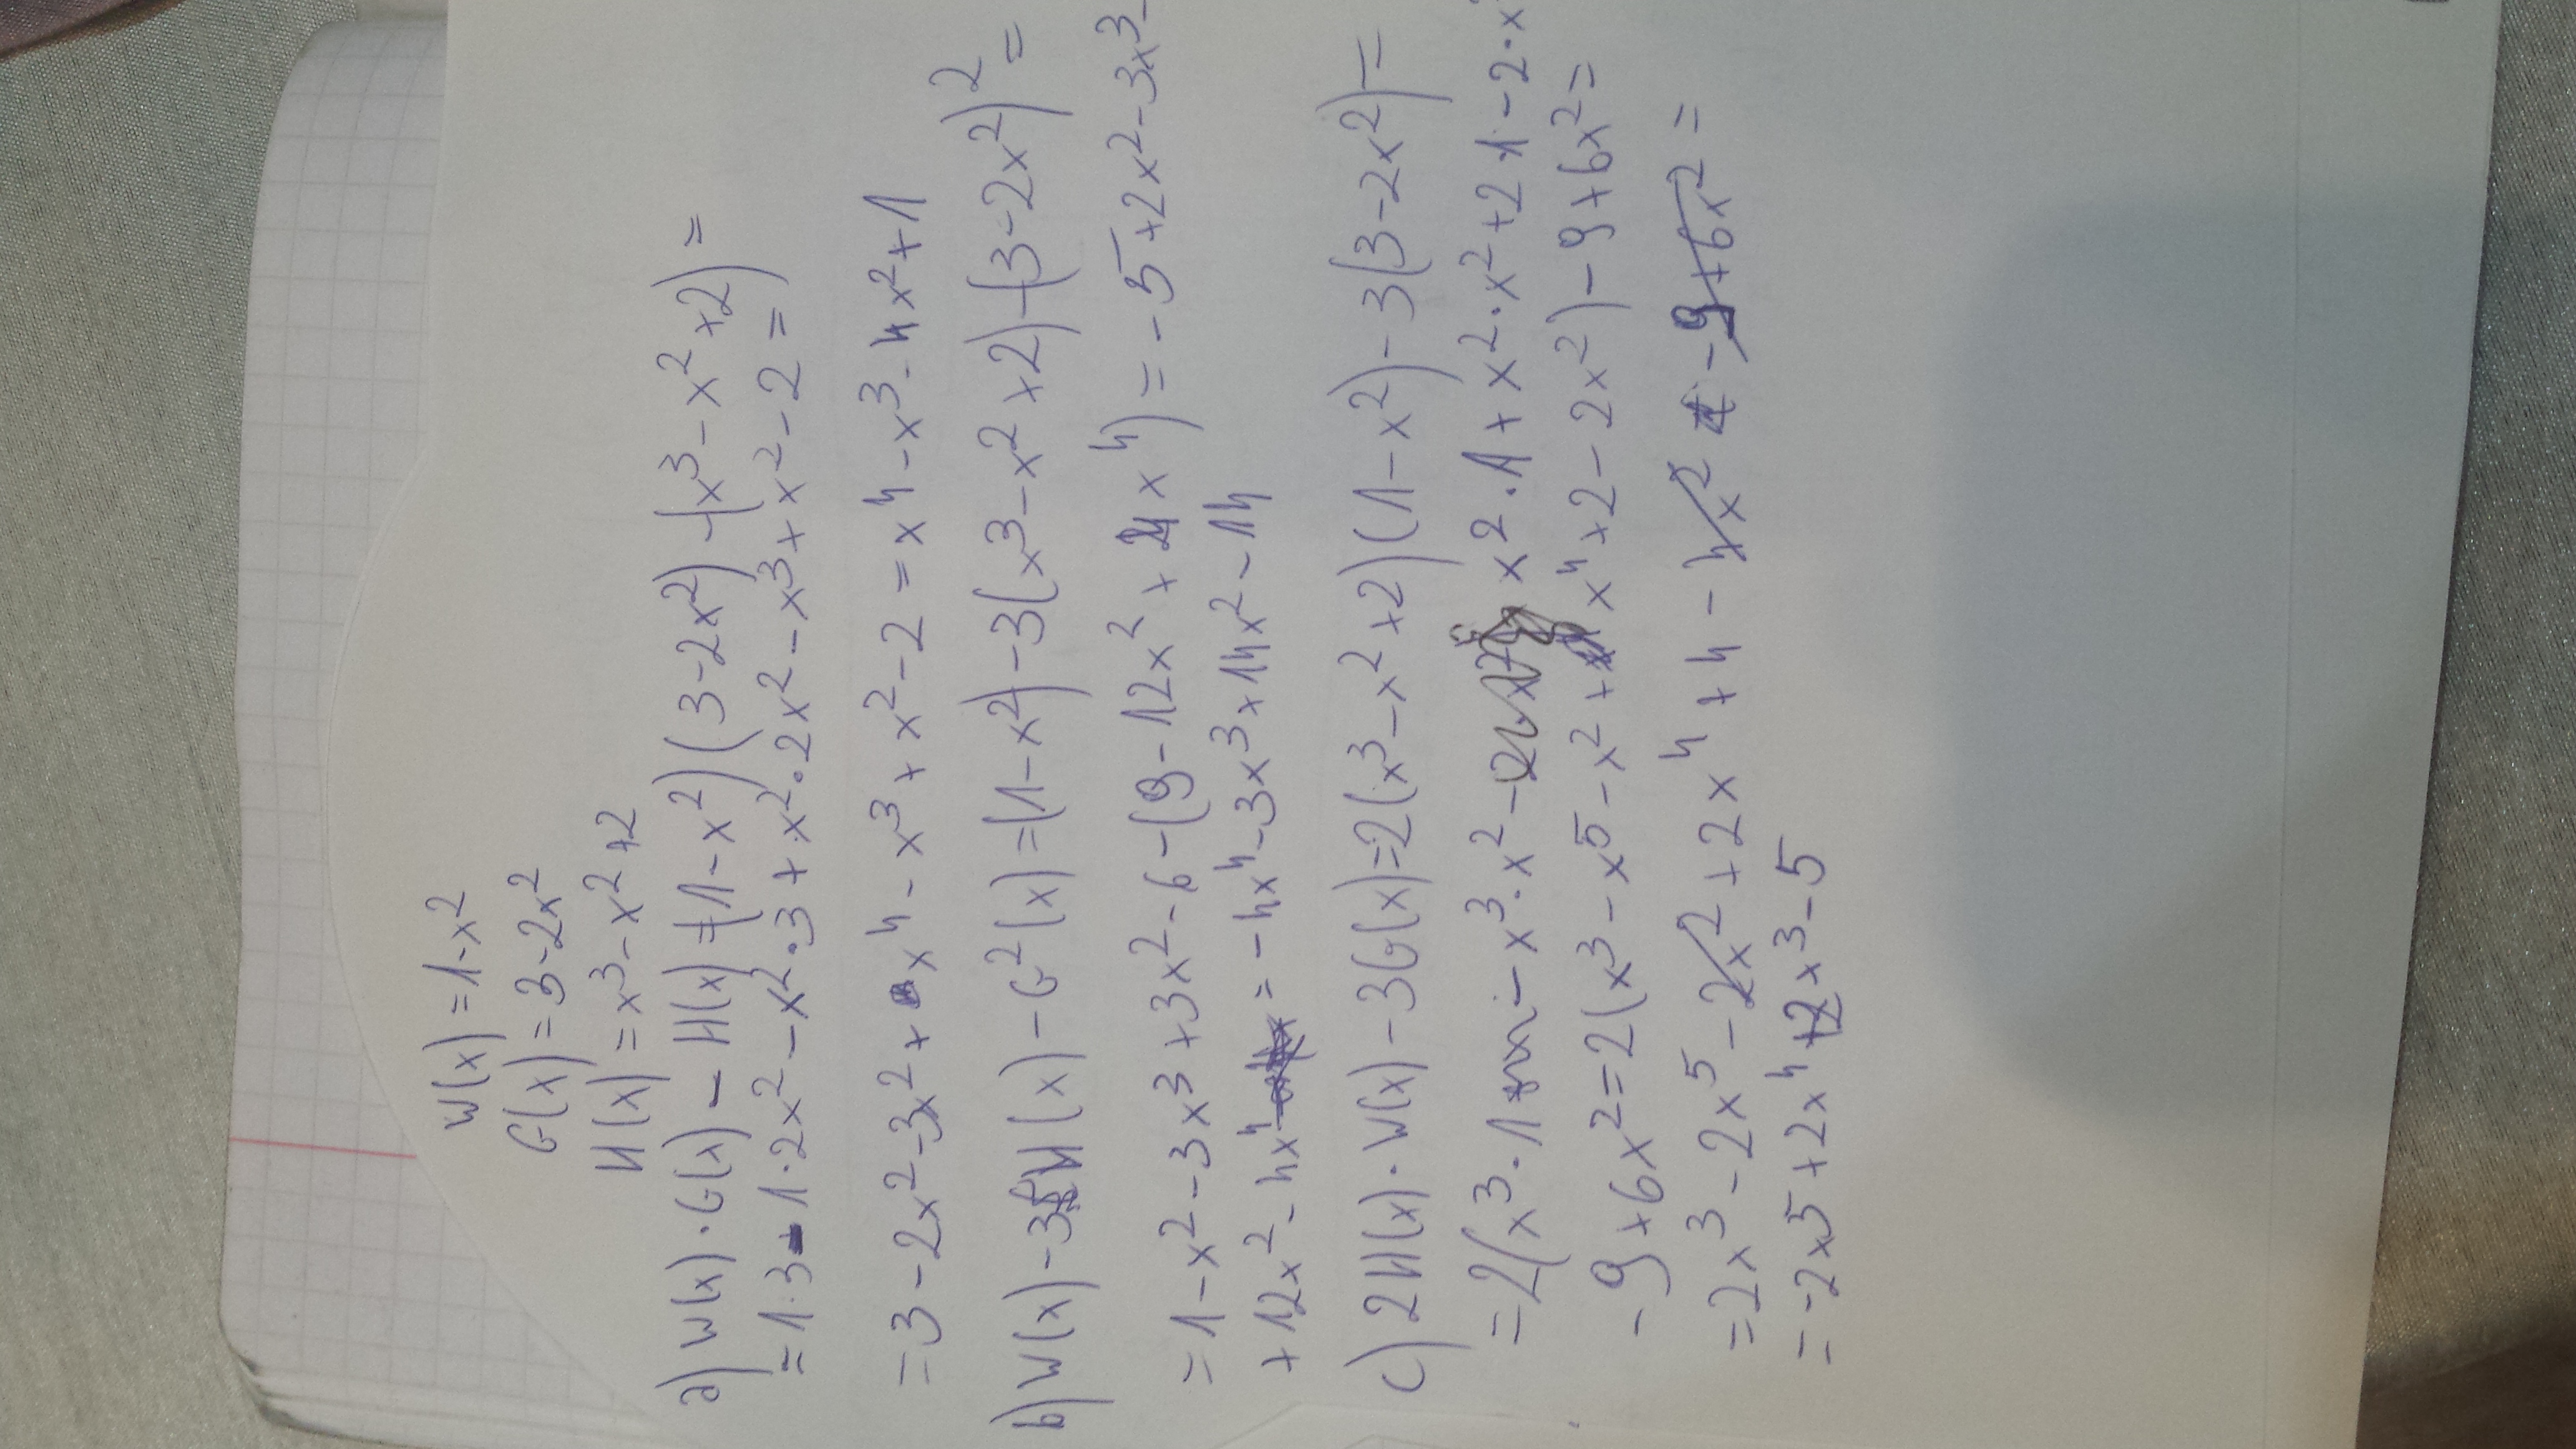 W(x) = 1-x²
G(x) = 3-2x²
H(x) = x³-x²+2
a) W(x)·G(x) - H(x) = (1-x²)(3-2x²) - (x³-x²+2) =
= 1·3-1·2x²-x²·3+x²·2x²-x³+x²-2 =
= 3-2x²-3x²+x⁴-x³+x²-2 = x⁴-x³-4x²+1
b) W(x)-3H(x)-G²(x) = (1-x²)-3(x³-x²+2)-(3-2x²)² =
= 1-x²-3x³+3x²-6-(9-12x²+4x⁴) = -5+2x²-3x³-
+12x²-4x⁴ = -4x⁴-3x³+14x²-14
c) 2H(x)·W(x)-3G(x) = 2(x³-x²+2)(1-x²)-3(3-2x²) =
= 2(x³·1 -x³·x²- x²·1+x²·x²+2·1-2·x²
-9+6x² = 2(x³-x⁵-x²+x⁴+2-2x²)-9+6x² =
= 2x³-2x⁵-2x²+2x⁴+4-4x²-9+6x² =
= -2x⁵+2x⁴+2x³-5